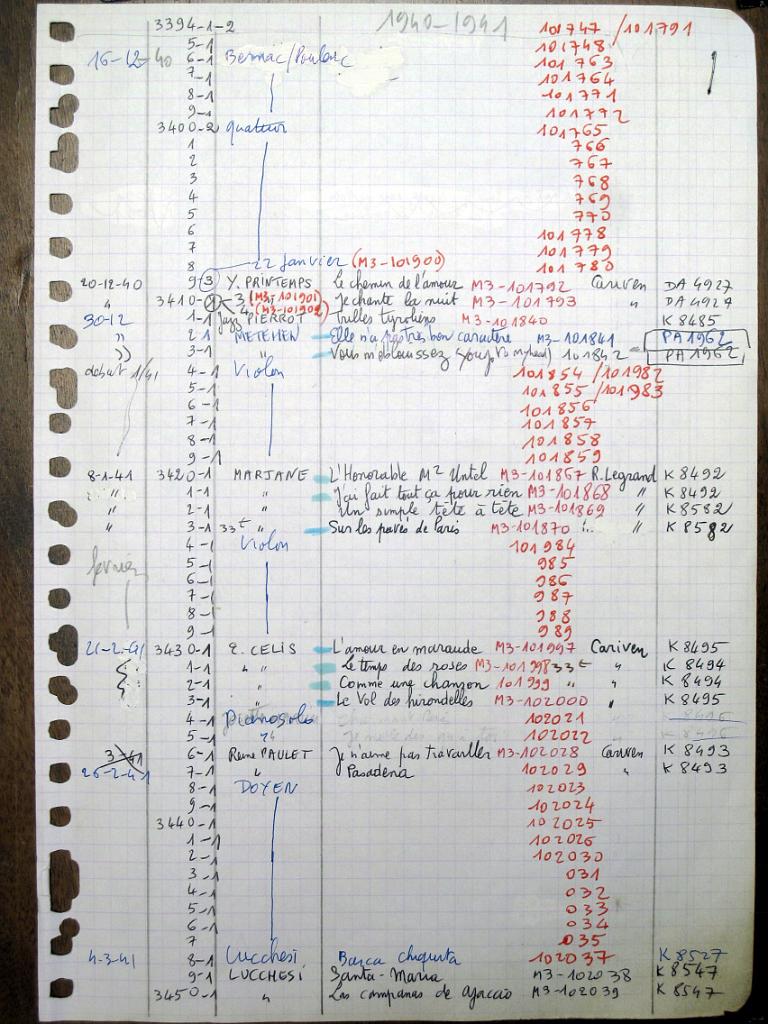 3394-1-2 1940-1941 101747 /101791
5-1 101748
16-12-40 6-1 Bernac/Poulenc 101763
7-1 101764
8-1 101771
9-1 101772
3400-2 quatuor 101765
1 766
2 767
3 768
4 769
5 770
6 101778
7 101779
8 22 Janvier (M3-101900) 101780
20-12-40 9-3 Y. PRINTEMPS Le chemin de l'amour M3-101792 Cariven DA 4927
" 3410-1 3 (M3-101901) Je chante la nuit M3-101793 " DA 4927
4 (M3-101902)
30-12 1-1 Jazz PIERROT Trilles tyroliens M3-101840 K 8485
" 2-1 METEHEN Elle n'a pas très bon caractère M3-101841 PA 1962
" 3-1 " Vous m'éblouissez 101842 = PA 1962
début 1/41 4-1 Violon 101854 /101982
5-1 101855 /101983
6-1 101856
7-1 101857
8-1 101858
9-1 101859
8-1-41 3420-1 MARJANE L'Honorable Mr Untel M3-101867 R.Legrand K 8492
" 1-1 " J'ai fait tout ça pour rien M3-101868 " K 8492
" 2-1 " Un simple tête à tête M3-101869 " K 8582
" 3-1 33t " Sur les pavés de Paris M3-101870 " " K 8582
4-1 Violon 101984
février 5-1 985
6-1 986
7-1 987
8-1 988
9-1 989
21-2-41 3430-1 E. CELIS L'amour en maraude M3-101997 Cariven K 8495
1-1 " " Le temps des roses M3-101998 33t " K 8494
2-1 " Comme une chanson 101999 " " K 8494
3-1 " Le Vol des hirondelles M3-102000 " K 8495
4-1 Pianosolo 102021
5-1 " 102022
3-41 6-1 Rene PAULET Je n'aime pas travailler M3-102028 Cariven K 8493
26-2-41 7-1 " Pasadena 102029 " K 8493
8-1 DOYEN 102023
9-1 102024
3440-1 102025
1-1 102026
2-1 102030
3-1 031
4-1 032
5-1 033
6-1 034
7 035
4-3-41 8-1 Lucchesi Barca chiquita 102037 K 8527
9-1 LUCCHESI Santa-Maria M3-102038 K 8547
3450-1 " Las campanas de ajaccio M3-102039 K 8547